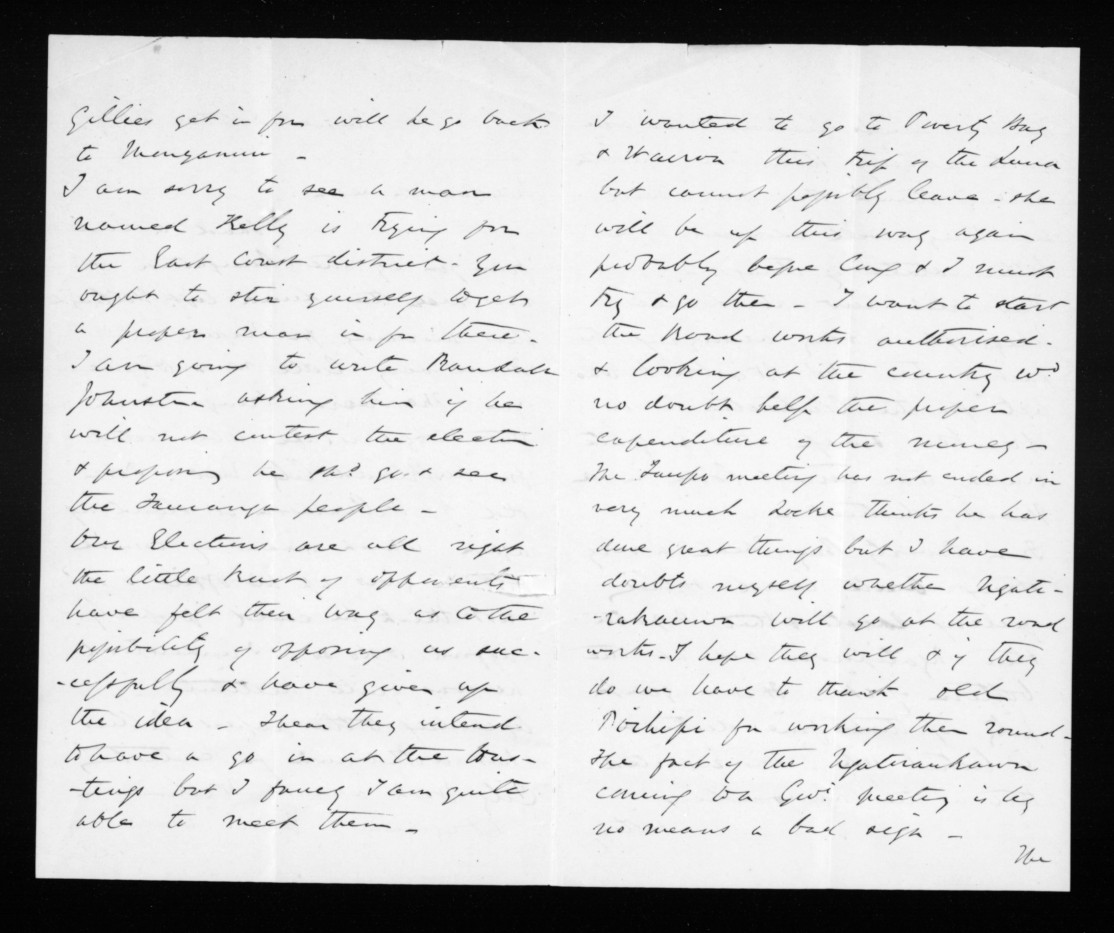 Gillies get in for will he go back
to Monganui -
I am sorry to see a man
named Kelly is trying for
the East Coast district - You
ought to stir yourself to get
a proper man in for there -
I am going to write Randall
Johnston asking him if he
will not contest the election
& proposing he shd. go & see
the Tauranga people -
Our Elections are all right
the little knot of opponents
have felt their way as to the
possibility of opposing us suc-
-cessfully & have given up
the idea - I hear they intend
to have a go in at the Hus-
-tings but I fancy I am quite
able to meet them -
I wanted to go to Poverty Bay
& Wairoa this trip of the Luna
but cannot possibly leave - she
will be up this way again
probably before long & I must
try & go then - I want to start
the Road works authorised -
& looking at the country wd.
no doubt help the proper
expenditure of the money -
The Taupo meeting has not ended in
very much Locke thinks he has
done great things but I have
doubts myself whether Ngati-
-rakauwa will go at the road
works - I hope they will & if they
do we have to thank old
Poihipi for working them round -
The fact of the Ngatiraukawa
coming to a Govt. meeting is by
no means a bad sign -
The